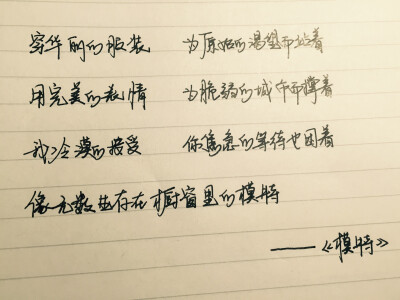 穿华丽的服装 为原始的渴望而站着
用完美的表情 为脆弱的城市而撑着
我冷漠的接受 你焦急的等待也困着
像无数生存在橱窗里的模特
——《模特》